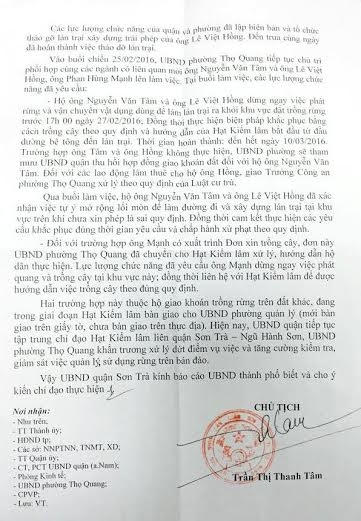 Các lực lượng chức năng của quận và phường đã lập biên bản và tổ chức
tháo gỡ lán trại xây dựng trái phép của ông Lê Việt Hồng. Đến trưa cùng ngày
đã hoàn thành việc tháo dỡ lán trại.
Vào buổi chiều 25/02/2016, UBND phường Thọ Quang tiếp tục chủ trì
phối hợp cùng các ngành có liên quan mời ông Nguyễn Văn Tâm và ông Lê Việt
Hồng, ông Phan Hùng Mạnh lên làm việc. Tại buổi làm việc, các lực lượng chức
năng đã yêu cầu:
- Hộ ông Nguyễn Văn Tâm và ông Lê Việt Hồng dừng ngay việc phát
rừng và vận chuyển vật dụng dùng để làm lán trại ra khỏi khu vực đất trồng rừng
trước 17h 00 ngày 27/02/2016. Đồng thời thực hiện biện pháp khắc phục bằng
cách trồng cây theo quy định và hướng dẫn của Hạt Kiểm lâm bắt đầu từ đầu
đường bê tông đến lán trại. Thời gian hoàn thành: đến hết ngày 10/03/2016.
Trường hợp ông Tâm và ông Hồng không thực hiện, UBND phường sẽ tham
mưu UBND quận thu hồi hợp đồng giao khoán đất đối với hộ ông Nguyễn Văn
Tâm. Đối với các lao động làm thuê cho hộ ông Hồng, giao Trưởng Công an
phường Thọ Quang xử lý theo quy định của Luật cư trú.
Qua buổi làm việc, hộ ông Nguyễn Văn Tâm và ông Lê Việt Hồng đã xác
nhận việc tự ý mở rộng lối mòn để làm đường đi và xây dựng lán trại tại khu
vực trên khi chưa xin phép là sai quy định. Đồng thời cam kết thực hiện các yêu
cầu khắc phục đúng thời gian yêu cầu và chấp hành xử phạt theo quy định.
- Đối với trường hợp ông Mạnh có xuất trình Đơn xin trồng cây, đơn này
UBND phường Thọ Quang đã chuyển cho Hạt Kiểm lâm xử lý, hướng dẫn hộ
dân thực hiện. Lực lượng chức năng đã yêu cầu ông Mạnh dừng ngay việc phát
quang và trồng cây tại khu vực này; đồng thời liên hệ với Hạt Kiểm lâm để được
hướng dẫn việc trồng cây theo đúng quy định.
Hai trường hợp này thuộc hộ giao khoán trồng rừng trên đất khác, đang
trong giai đoạn Hạt Kiểm lâm bàn giao cho UBND phường quản lý (mới bàn
giao trên giấy tờ, chưa bàn giao trên thực địa). Hiện nay, UBND quận tiếp tục
tập trung chỉ đạo Hạt Kiểm lâm liên quận Sơn Trà – Ngũ Hành Sơn, UBND
phường Thọ Quang khẩn trương xử lý dứt điểm vụ việc và tăng cường kiểm tra,
giám sát việc quản lý, sử dụng rừng trên bán đảo.
Vậy UBND quận Sơn Trà kính báo cáo UBND thành phố biết và cho ý
kiến chỉ đạo thực hiện./.
Nơi nhận:
- Như trên;
- TT Thành ủy;
- HĐND tp;
- Các sở: NNPTNN, TNMT, XD;
- TT Quận ủy;
- CT, PCT UBND quận (a.Nam);
- Phòng Kinh tế;
- UBND phường Thọ Quang;
- CPVP;
- Lưu: VT.
CHỦ TỊCH
Trần Thị Thanh Tâm